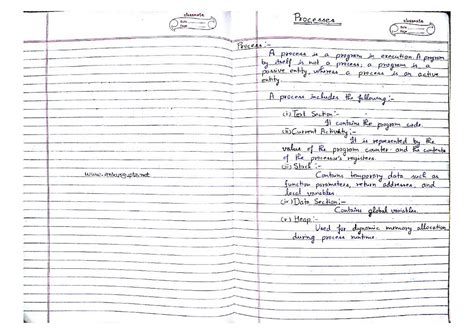 classmate
Date
Page
www.ankurgupta.net
classmate
Date
Page
Processes
Process:-
A process is a program in execution. A program
by itself is not a process; a program is a
passive entity, whereas a process is an active
entity.
A process includes the following:-
(i) Text Section:-
It contains the program code.
(ii) Current Activity:-
It is represented by the
value of the program counter and the contents
of the processor's registers.
(iii) Stack:-
Contains temporary data such as
function parameters, return addresses, and
local variables.
(iv) Data Section:-
Contains global variables.
(v) Heap:-
Used for dynamic memory allocation
during process runtime.